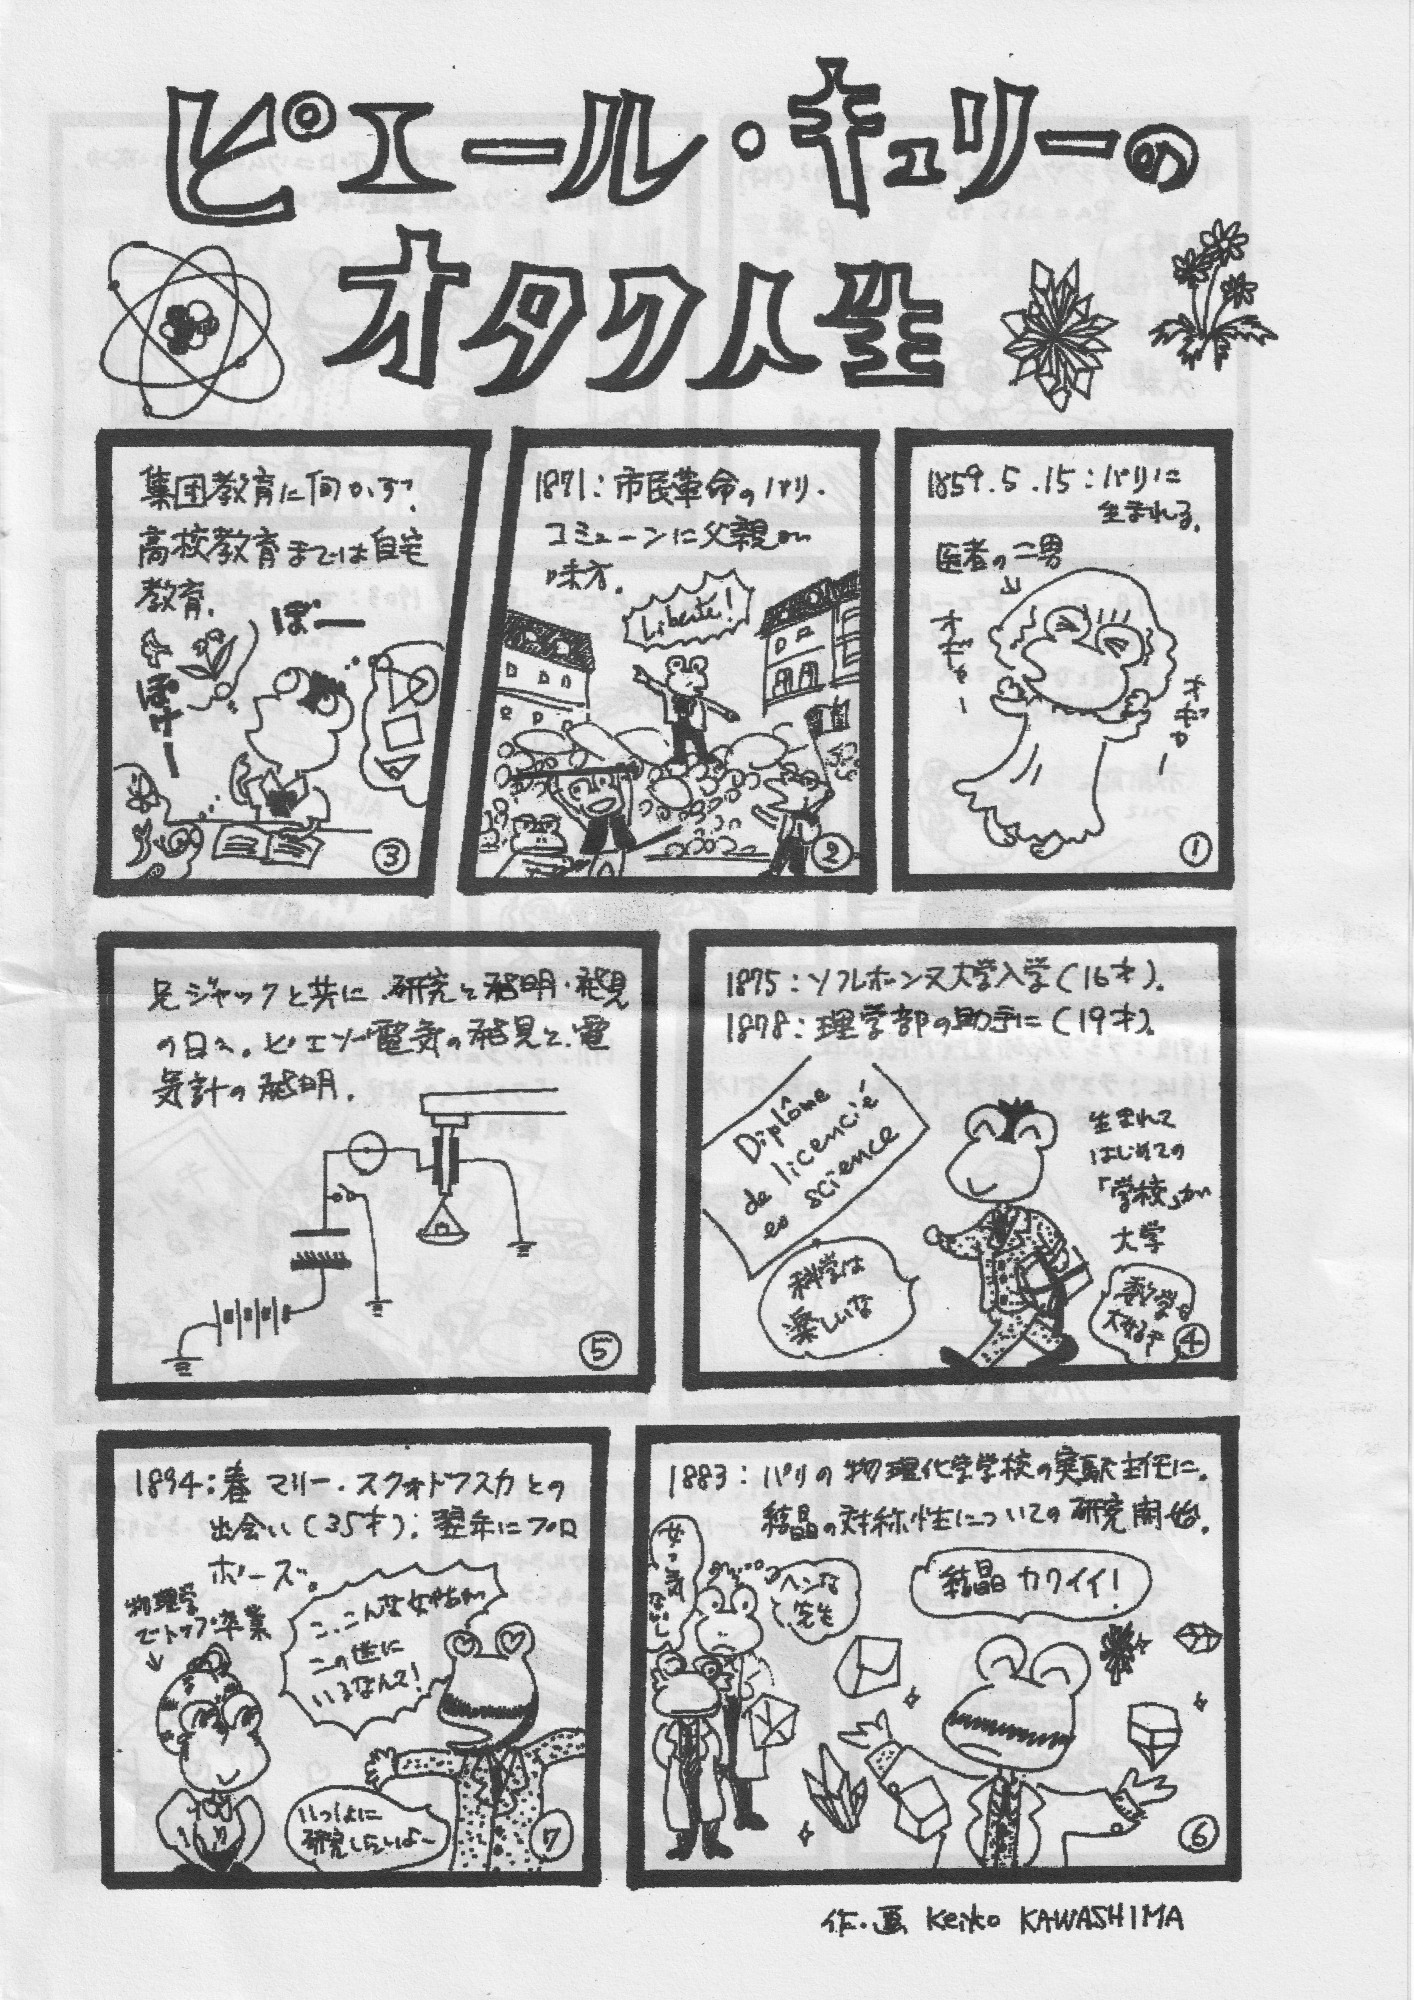 ピエール・キュリーの
オタク人生
1859.5.15:パリに
生まれる.
医者の二男
オギャー
オギャー
①
1871:市民革命のパリ・
コミューンに父親が
味方.
Liberté!
②
集団教育に向かず?
高校教育までは自宅
教育.
ぼー
ぽけー
③
1875:ソルボンヌ大学入学(16才).
1878:理学部の助手に(19才).
Diplôme
de licencié
es science
生まれて
はじめての
「学校」が
大学
科学は
楽しいな
数学も
大好きや
④
兄ジャックと共に研究と発明・発見
の日々。ピエゾ電気の発見と、電
気計の発明.
⑤
1883:パリの物理化学学校の実験主任に.
結晶の対称性についての研究開始.
女っ気
なし
ヘンな
先生
結晶カワイイ!
⑥
1894:春 マリー・スクォドフスカとの
出会い(35才). 翌年にプロ
ポーズ。
物理学
でトップ卒業
こ、こんな女性が
この世に
いるなんて!
いっしょに
研究したいよ~
⑦
作・画 Keiko KAWASHIMA